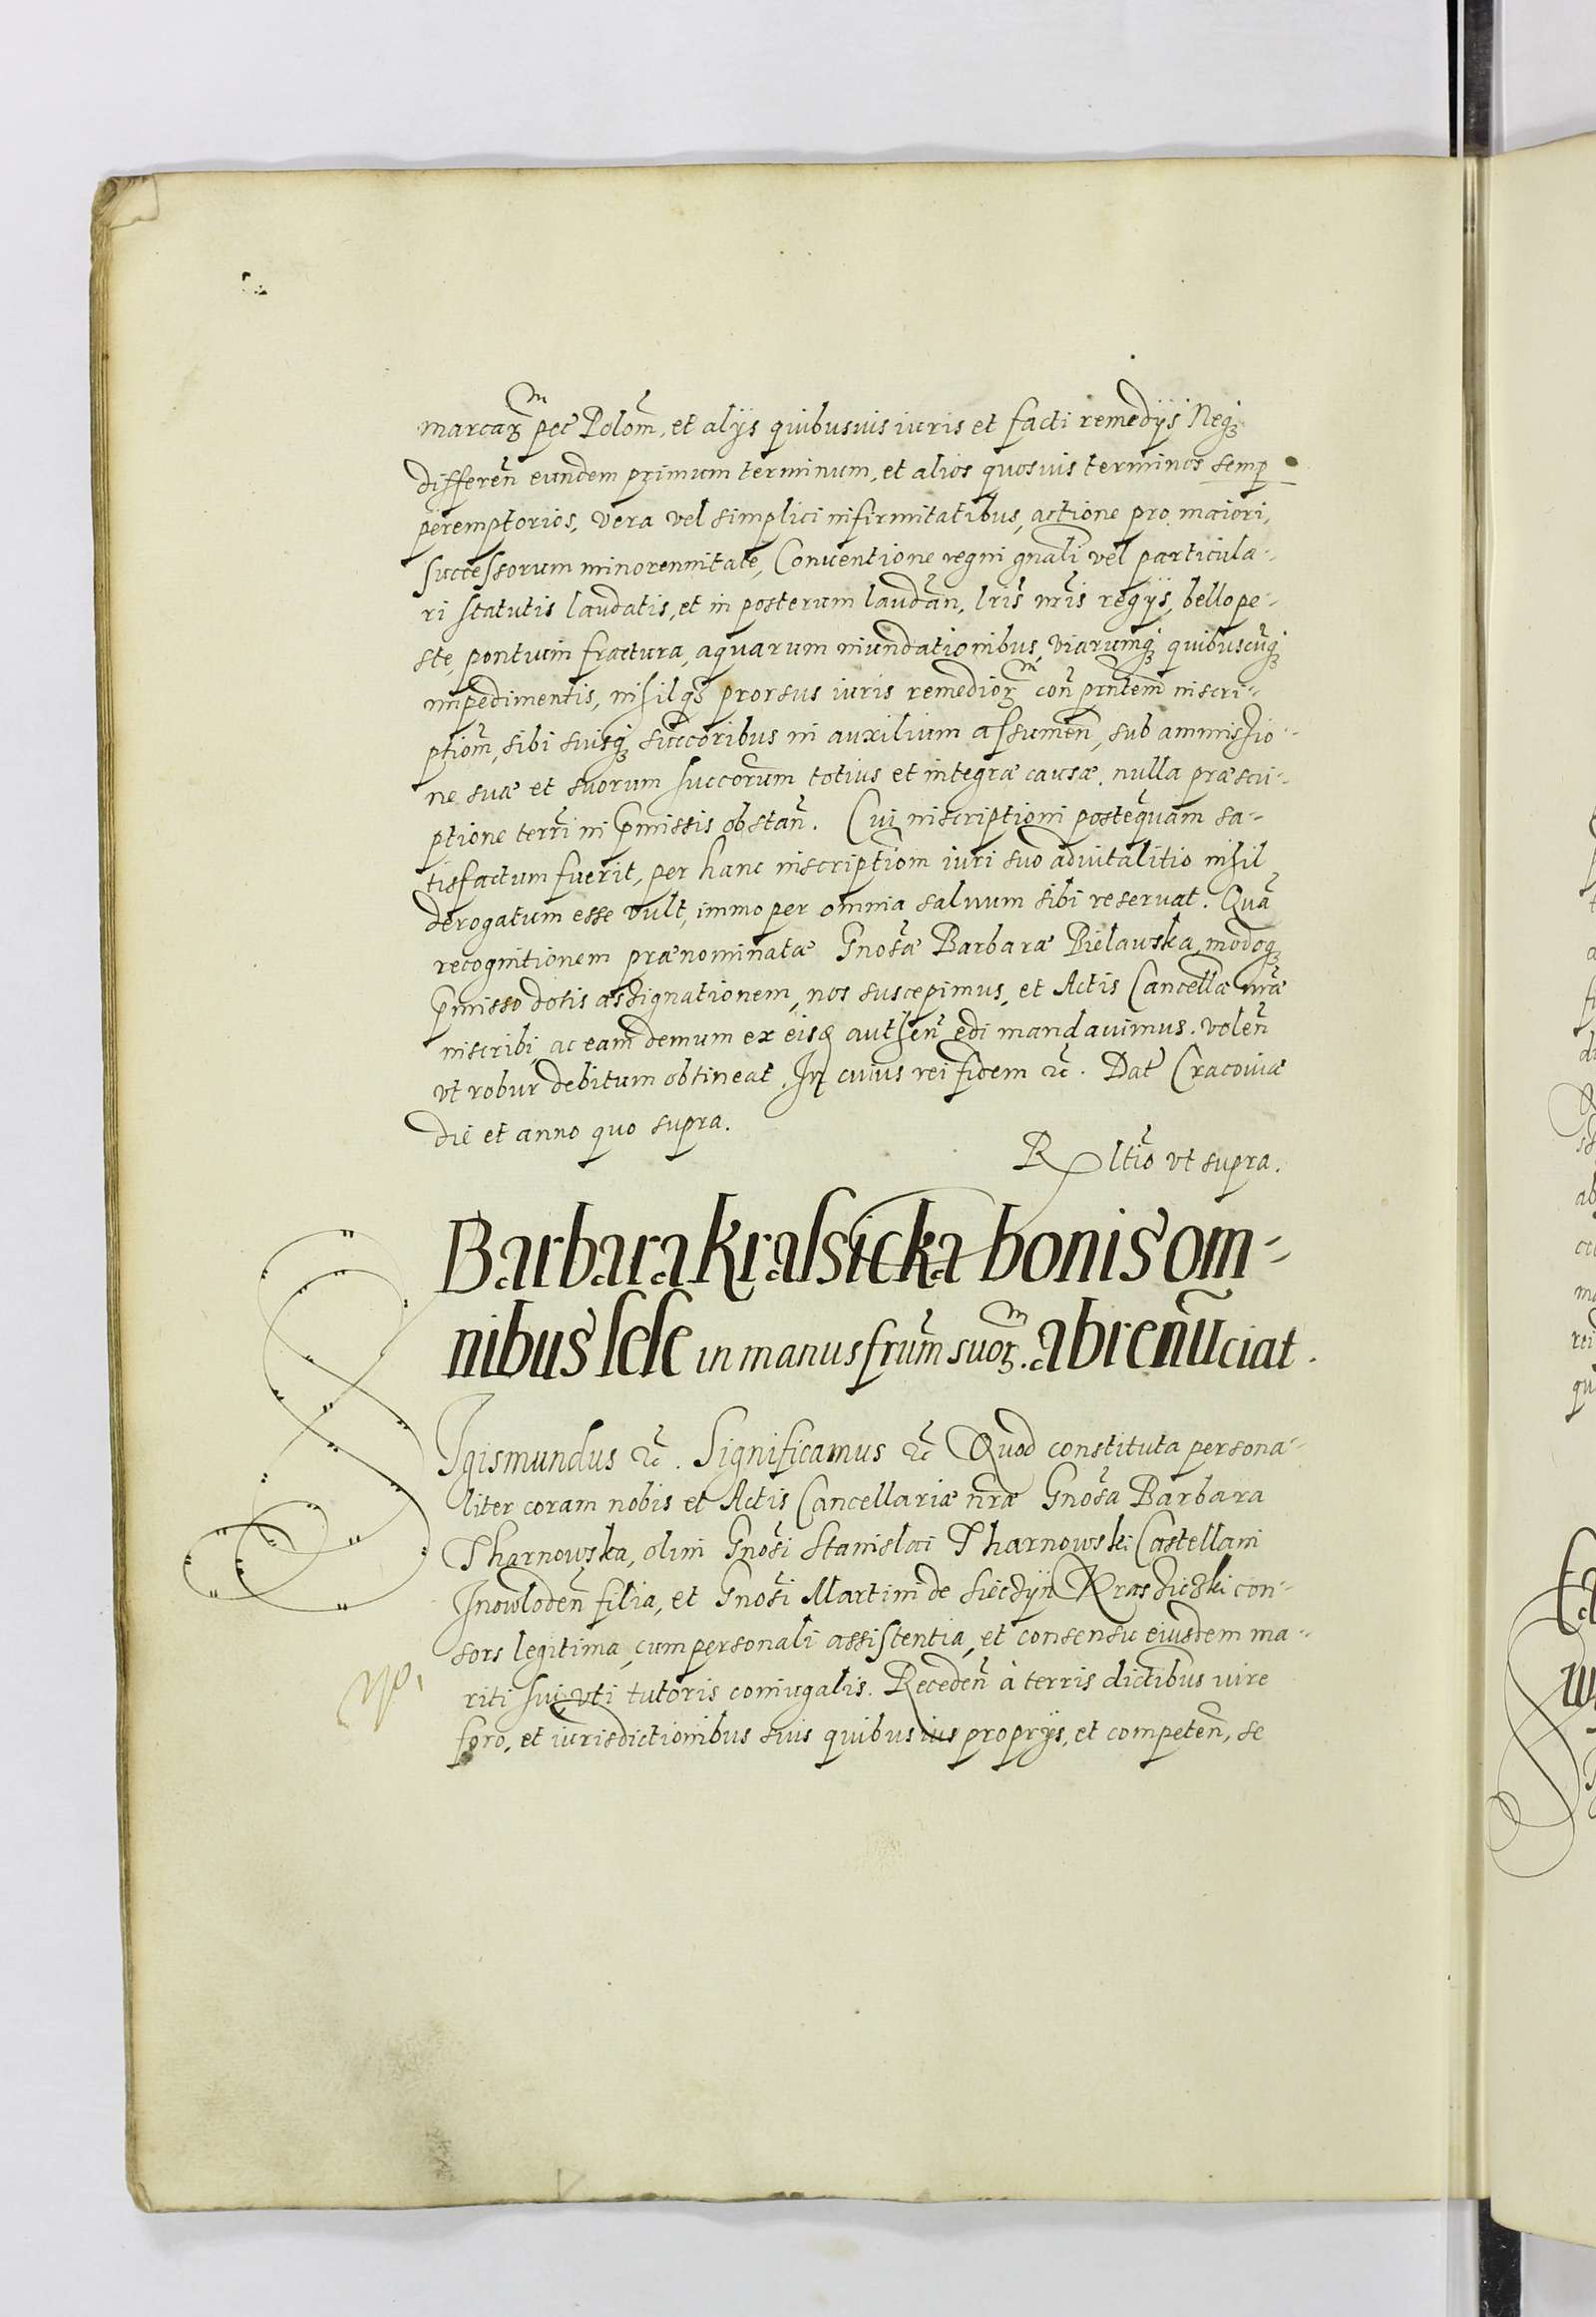 marcarꝫ pec̃ Polom̃, et alijs quibusuis iuris et facti remedijs Neqꝫ
differeñ eundem primum terminum, et alios quosuis terminos semp
peremptorios, vera vel simplici infirmitatibus, actione pro maiori,
successorum minorennitate, Conuentione regni gñali vel particula-
ri statutis laudatis, et in posterum laudañ, lris̃ nris̃ regijs, bello pe-
ste, pontium fractura, aquarum inundationibus, viarumqꝫ quibuscũqꝫ
impedimentis, nihil prorsus iuris remediorꝫ coñ pñtem inscri-
ptiom̃, sibi suisqꝫ succoribus in auxilium assumeñ, sub ammissio-
ne suæ et suorum succorum totius et integræ causæ, nulla præscri-
ptione terrĩ in p̃missis obstañ. Cui inscriptioni posteq̃uam sa-
tisfactum fuerit, per hanc inscriptiom̃ iuri suo aduitalitio nihil
derogatum esse vult, immo per omnia saluum sibi reseruat. Quã
recognitionem prænominatæ Gnosæ̃ Barbaræ Bielawska modoqꝫ
p̃misso dotis assignationem, nos suscepimus, et Actis Cancellæ nr̃æ
inscribi, ac eam demum ex eisd autheñ edi mandauimus. voleñ
vt robur debitum obtineat. In cuius rei fidem ꝛc̃. Dat̃ Cracouiæ
die et anno quo supra.
R ltio̊ vt supra.
Barbara Krasicka bonis om-
nibus sese in manus frum̃ suorꝫ. abrenũciat.
Sigismundus ꝛc̃. Significamus ꝛc̃ Quod constituta persona-
liter coram nobis et Actis Cancellariæ nr̃æ Gnosã Barbara
Tharnowska, olim Gnosĩ Stanislai Tharnowski Castellani
Inowlodeñ filia, et Gnosĩ Martini de Siecijn Krasiczki con-
sors legitima, cum personali assistentia, et consensu eiusdem ma-
riti sui, vti tutoris coniugalis. Recedeñ à terris dictibus iure
foro, et iurisdictionibus suis quibusuis proprijs, et competeñ, se